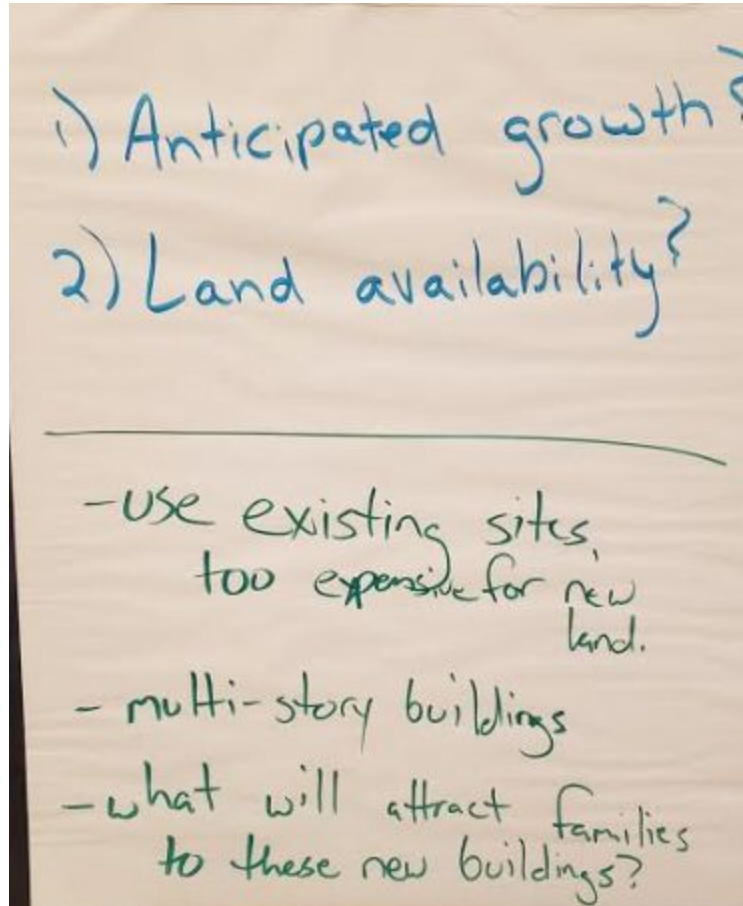 1) Anticipated growth?
2) Land availability?
-use existing sites,
too expensive for new
land.
- multi-story buildings
-what will attract families
to these new buildings?